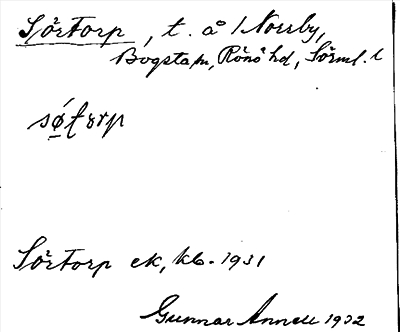 Sörtorp, t. å /Norrby,
Bogsta sn, Rönö hd, Sörml. l
Sörtorp ek, kb. 1931
Gunnar Annell 1932